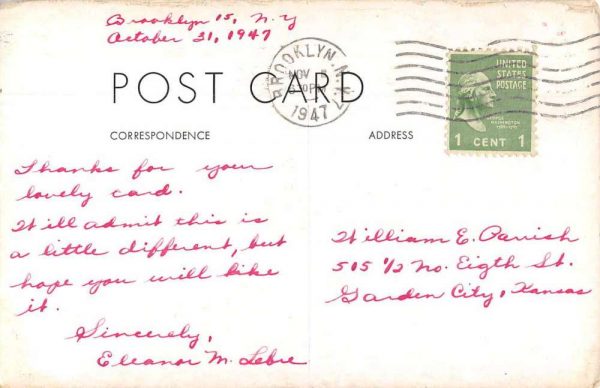 Brooklyn 15, N.Y
October 31, 1947
POST CARD
BROOKLYN, N.Y.
NOV
PM
1947
UNITED
STATES
POSTAGE
GEORGE
WASHINGTON
1 CENT 1
CORRESPONDENCE
ADDRESS
Thanks for your
lovely card.
I'll admit this is
a little different, but
hope you will like
it.
Sincerely,
Eleanor M. Lebre
William E. Parish
515 1/2 No. Eigth St.
Garden City, Kansas